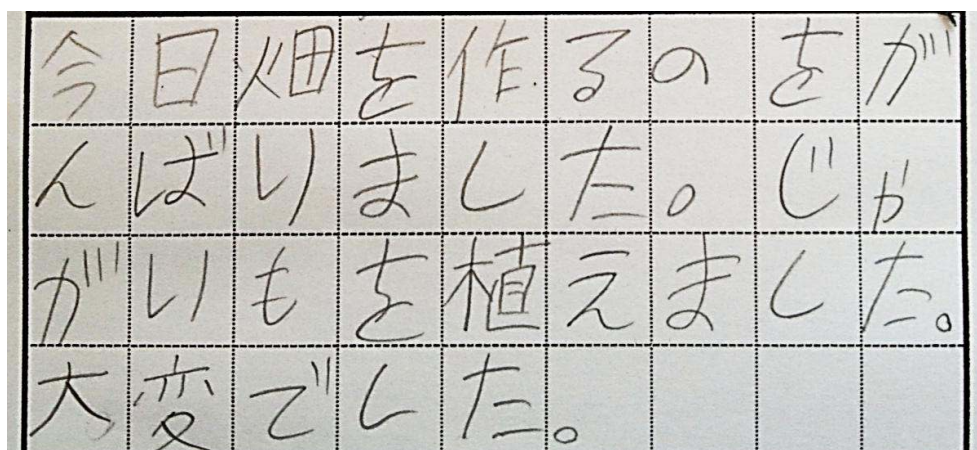 今日畑を作るのをが
んばりました。じゃ
がいもを植えました。
大変でした。